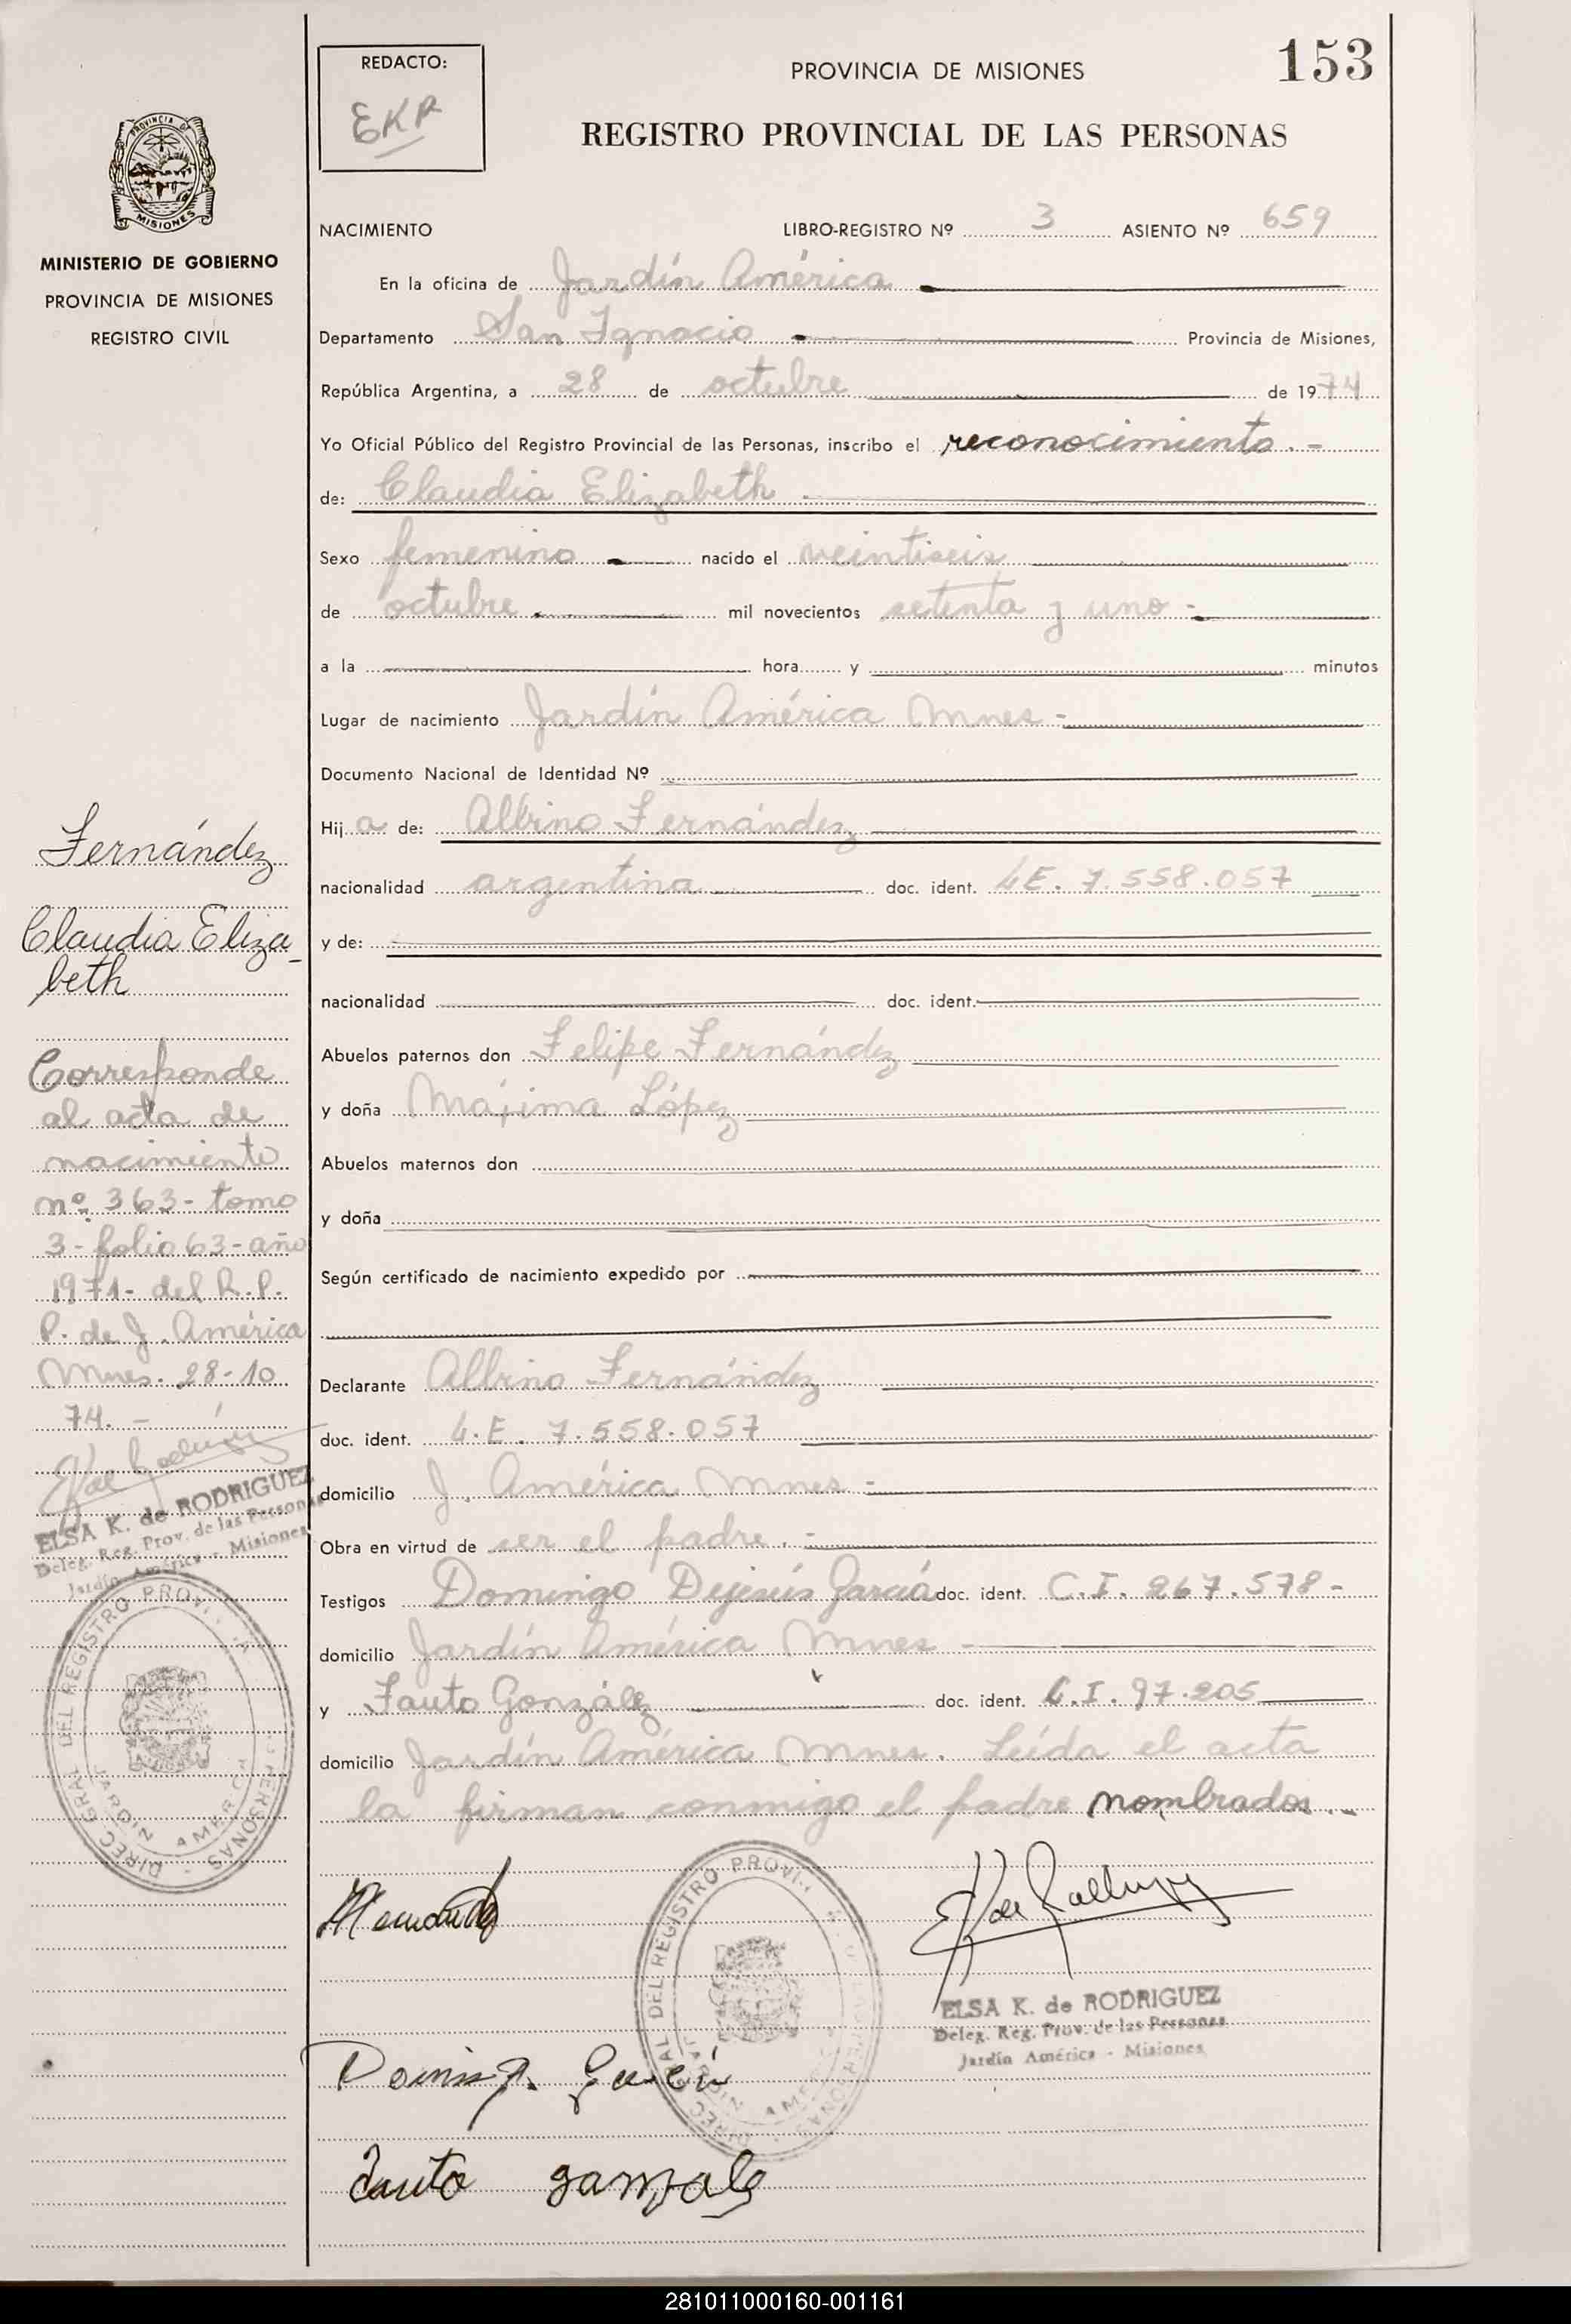 153
REDACTO:
EKR
PROVINCIA DE MISIONES
REGISTRO PROVINCIAL DE LAS PERSONAS
PROVINCIA DE
MISIONES
MINISTERIO DE GOBIERNO
PROVINCIA DE MISIONES
REGISTRO CIVIL
NACIMIENTO LIBRO-REGISTRO Nº 3 ASIENTO Nº 659
En la oficina de Jardín América
Departamento San Ignacio Provincia de Misiones,
República Argentina, a 28 de octubre de 1974
Yo Oficial Público del Registro Provincial de las Personas, inscribo el reconocimiento. -
de: Claudia Elizabeth
Sexo femenino nacido el veintiseis
de octubre mil novecientos setenta y uno -
a la hora y minutos
Lugar de nacimiento Jardín América Mnes -
Documento Nacional de Identidad Nº
Hija de: Albino Fernández
nacionalidad argentina doc. ident. L.E. 7.558.057
y de:
nacionalidad doc. ident.
Abuelos paternos don Felipe Fernández
y doña Májima López
Abuelos maternos don
y doña
Según certificado de nacimiento expedido por
Declarante Albino Fernández
doc. ident. L.E. 7.558.057
domicilio J. América Mnes -
Obra en virtud de ser el padre. -
Testigos Domingo Dejesús García doc. ident. C.I. 267.578-
domicilio Jardín América Mnes -
y Fauto González doc. ident. C.I. 97.205
domicilio Jardín América Mnes. Leída el acta
la firman conmigo el padre nombrados..
Fernández
Claudia Eliza-
beth
Corresponde
al acta de
nacimiento
nº 363- tomo
3- folio 63- año
1971- del R.P.
P. de J. América
Mnes. 28-10
74. -
ELSA K. de RODRIGUEZ
Deleg. Reg. Prov. de las Personas
Jardín América - Misiones
DIREC GRAL DEL REGISTRO PROVI PERSONAS
JARDIN AMERICA
DIREC GRAL DEL REGISTRO PROVI PERSONAS
JARDIN AMERICA
ELSA K. de RODRIGUEZ
Deleg. Reg. Prov. de las Personas
Jardín América - Misiones
Fauto
281011000160-001161